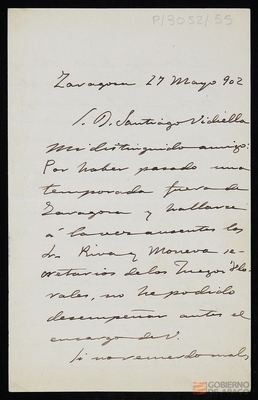 P/3032/55
Zaragoza 27 Mayo 902
S. D. Santiago Vidiella
Mi distinguido amigo:
Por haber pasado una
temporada fuera de
Zaragoza y hallarse
á la vez ausentes los
Srs Riva y Moneva se-
cretarios de los Juegos Flo-
rales, no he podido
desempeñar antes el
encargo de V.
Si no recuerdo mal,
GOBIERNO
DE ARAGON